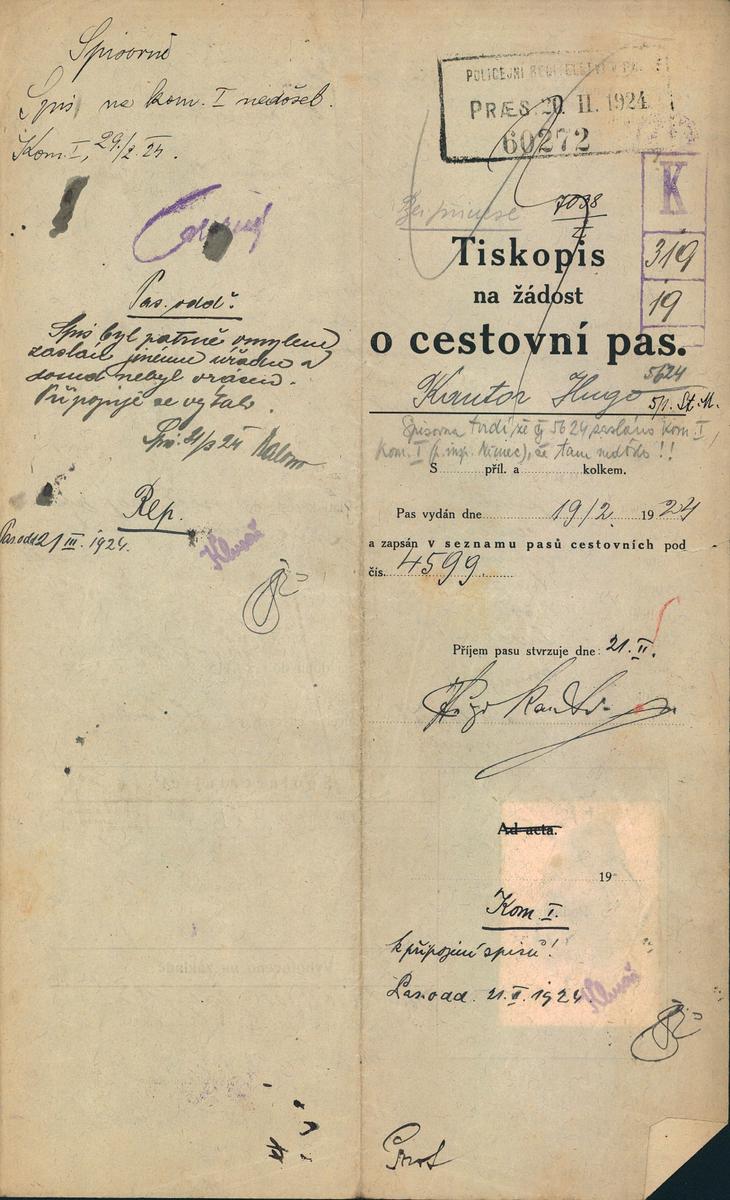 Spisovně
Spis na kom. I nedošel.
Kom. I, 29./2. 24.
Pas. odd.
Spis byl patrně omylem
zaslán jinému úřadu a
dosud nebyl vrácen.
Připojuje se
24
Rep.
Pas. odd. 21 III. 1924.
Klusáč
POLICEJNÍ ŘEDITELSTVÍ V PRAZE
PRÆS. 20. II. 1924
60272
7098
K
319
19
Tiskopis
na žádost
o cestovní pas.
5624
Kantor Hugo 5/1. St. M.
Spisovna tvrdí, že čj 5624 zasláno kom. I,
kom. I (p. insp. Němec), že tam nedošlo!!
S příl. a kolkem.
Pas vydán dne 19/2. 1924
a zapsán v seznamu pasů cestovních pod
čís. 4599.
Příjem pasu stvrzuje dne: 21. II.
Hugo Kantor
Ad acta.
19
Kom. I.
k připojení spisů!
Pas. odd. 21. II. 1924.